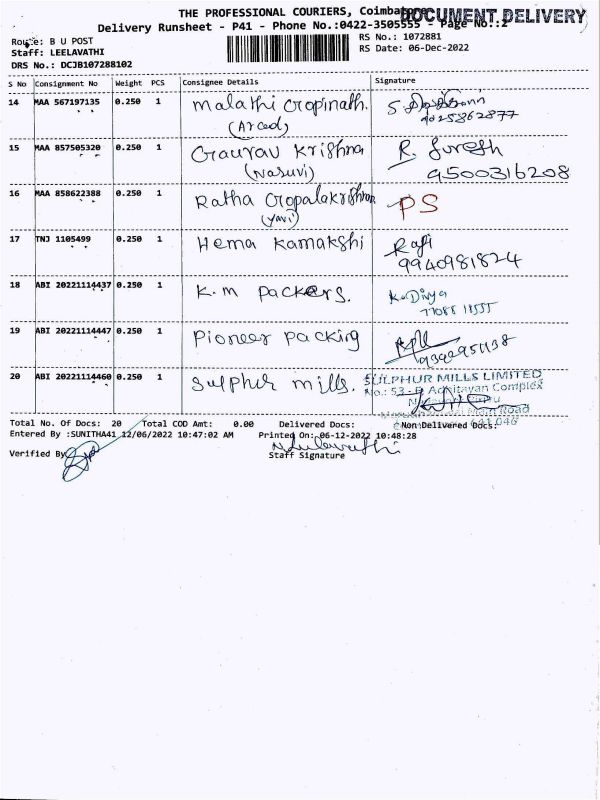 THE PROFESSIONAL COURIERS, Coimba
DOCUMENT DELIVERY
Delivery Runsheet - P41 - Phone No.:0422-3505555 - Page No.:2
Route: B U POST
RS No.: 1072881
Staff: LEELAVATHI
RS Date: 06-Dec-2022
DRS No.: DCJB107288102
S No Consignment No Weight PCS Consignee Details Signature
14 MAA 567197135 0.250 1 Malathi Gopinath.
(Arced)
9025862877
15 MAA 857505320 0.250 1 Gaurav Krishna R. Suresh
(Nasuvi) 9500316208
16 MAA 858622388 0.250 1 Ratha Gopalakrishnan PS
(Yavi)
17 TNJ 1105499 0.250 1 Hema Kamakshi Rafi
9940981824
18 ABI 20221114437 0.250 1 K.M Packers. K.Divya
77088 18555
19 ABI 20221114447 0.250 1 Pioneer Packing
20 ABI 20221114460 0.250 1 Sulphur mills. SULPHUR MILLS LIMITED
No.: 53 - B Adhitayan Complex
Main Road
641 046
Total No. Of Docs: 20 Total COD Amt: 0.00 Delivered Docs: Non Delivered Docs:
Entered By :SUNITHA41 12/06/2022 10:47:02 AM Printed On: 06-12-2022 10:48:28
Verified By
Staff Signature